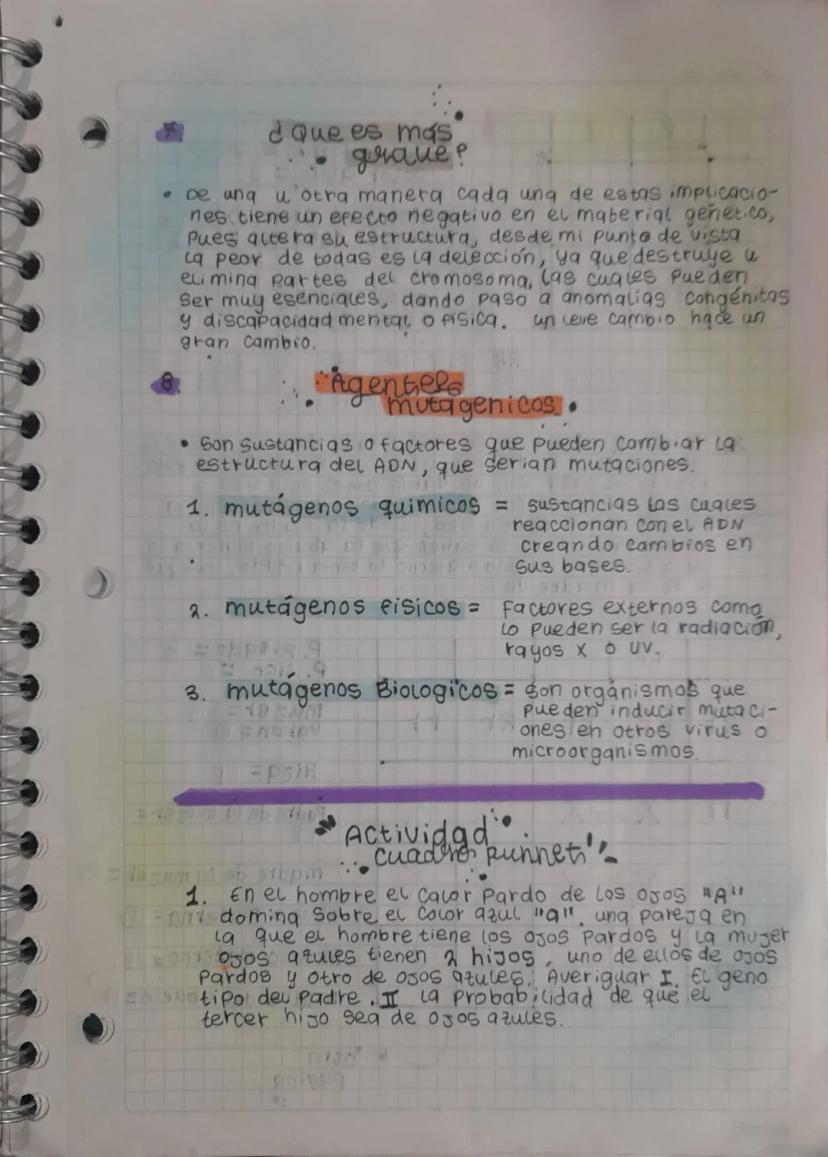 7 ¿Que es mas
grave?
• De una u otra manera cada una de estas implicacio-
nes tiene un efecto negativo en el material genetico,
pues altera su estructura, desde mi punto de vista
la peor de todas es la delección, ya que destruye u
elimina partes del cromosoma, las cuales pueden
ser muy esenciales, dando paso a anomalías congénitas
y discapacidad mental o física. un leve cambio hace un
gran cambio.
8. Agentes
mutagenicos
• Son sustancias o factores que pueden cambiar la
estructura del ADN, que serian mutaciones.
1. mutágenos quimicos = sustancias las cuales
reaccionan con el ADN
creando cambios en
sus bases.
2. mutágenos físicos = Factores externos como
lo pueden ser la radiación,
rayos x o uv.
3. mutágenos Biologicos = Son organismos que
pueden inducir mutaci-
ones en otros virus o
microorganismos
Actividad
cuadro punnet
1. En el hombre el color pardo de los ojos "A"
domina sobre el color azul "a". una pareja en
la que el hombre tiene los ojos pardos y la mujer
ojos azules tienen 2 hijos, uno de ellos de ojos
pardos y otro de ojos azules. Averiguar I. El geno
tipo del padre. II la probabilidad de que el
tercer hijo sea de ojos azules.